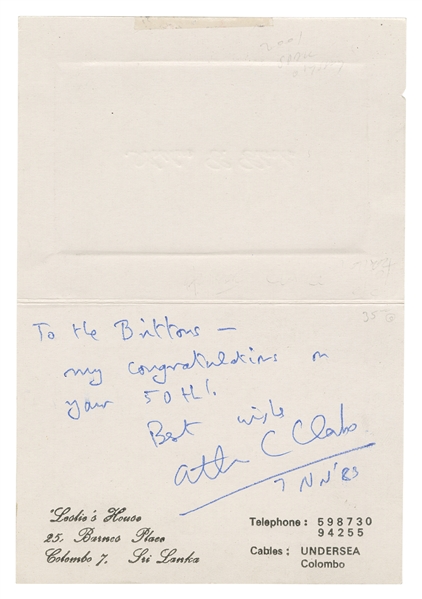 2001
To the Brittons –
my congratulations on
your 50th!
Best wishes
Arthur C Clarke
7 Nov '83
'Leslie's House
25, Barnes Place
Colombo 7, Sri Lanka
Telephone: 598730
94255
Cables: UNDERSEA
Colombo
35